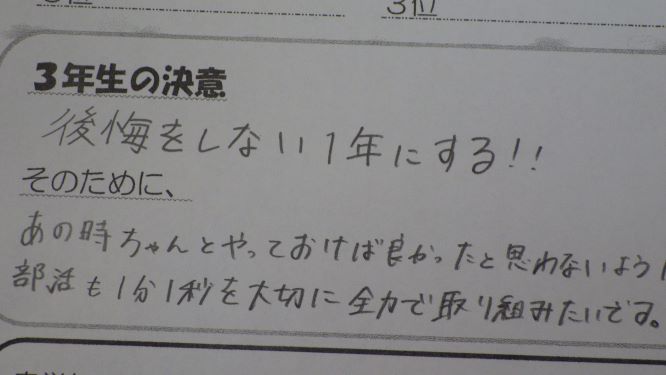 3位
3年生の決意
後悔をしない1年にする!!
そのために、
あの時ちゃんとやっておけば良かったと思わないよう
部活も1分1秒を大切に全力で取り組みたいです。